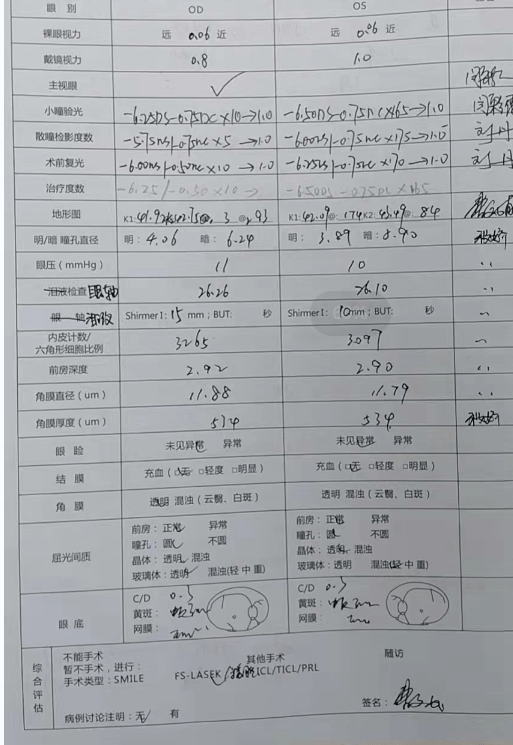 眼 别 OD OS
裸眼视力 远 0.06 近 远 0.06 近
戴镜视力 0.8 1.0
主视眼 ✓
小瞳验光 -6.25DS-0.75DC×10→1.0 -6.50DS-0.75DC×165→1.0
散瞳检影度数 -5.75DS/-0.75DC×5→1.0 -6.00DS/-0.75DC×175→1.0
术前复光 -6.00DS/-0.50DC×10→1.0 -6.25DS/-0.75DC×170→1.0
治疗度数 -6.25/-0.50×10→ -6.50DS-0.75DC×165
地形图 K1:41.92@ 3 @ 93 K1:42.09@ 174 K2:43.49@ 84
明/暗 瞳孔直径 明: 4.06 暗: 6.24 明: 3.89 暗: 5.90
眼压(mmHg) 11 10
泪液检查 眼轴 26.26 26.10
眼 轴 泪液 Shirmer I: 15 mm; BUT: 秒 Shirmer I: 10 mm; BUT: 秒
内皮计数/
六角形细胞比例 3265 3097
前房深度 2.92 2.90
角膜直径(um) 11.88 11.79
角膜厚度(um) 534 534
眼 睑 未见异常 异常 未见异常 异常
结 膜 充血(□无 □轻度 □明显) 充血(□无 □轻度 □明显)
角 膜 透明 混浊(云翳、白斑) 透明 混浊(云翳、白斑)
屈光间质
前房: 正常 异常 前房: 正常 异常
瞳孔: 圆 不圆 瞳孔: 圆 不圆
晶体: 透明 混浊 晶体: 透明 混浊
玻璃体: 透明 混浊(轻 中 重) 玻璃体: 透明 混浊(轻 中 重)
眼 底
C/D 0.3 C/D 0.3
黄斑: 黄斑:
网膜: 网膜:
综合评估
不能手术 其他手术 随访
暂不手术,进行:
手术类型: SMILE FS-LASEK ✓ ICL/TICL/PRL
签名:
病例讨论注明: 无✓ 有